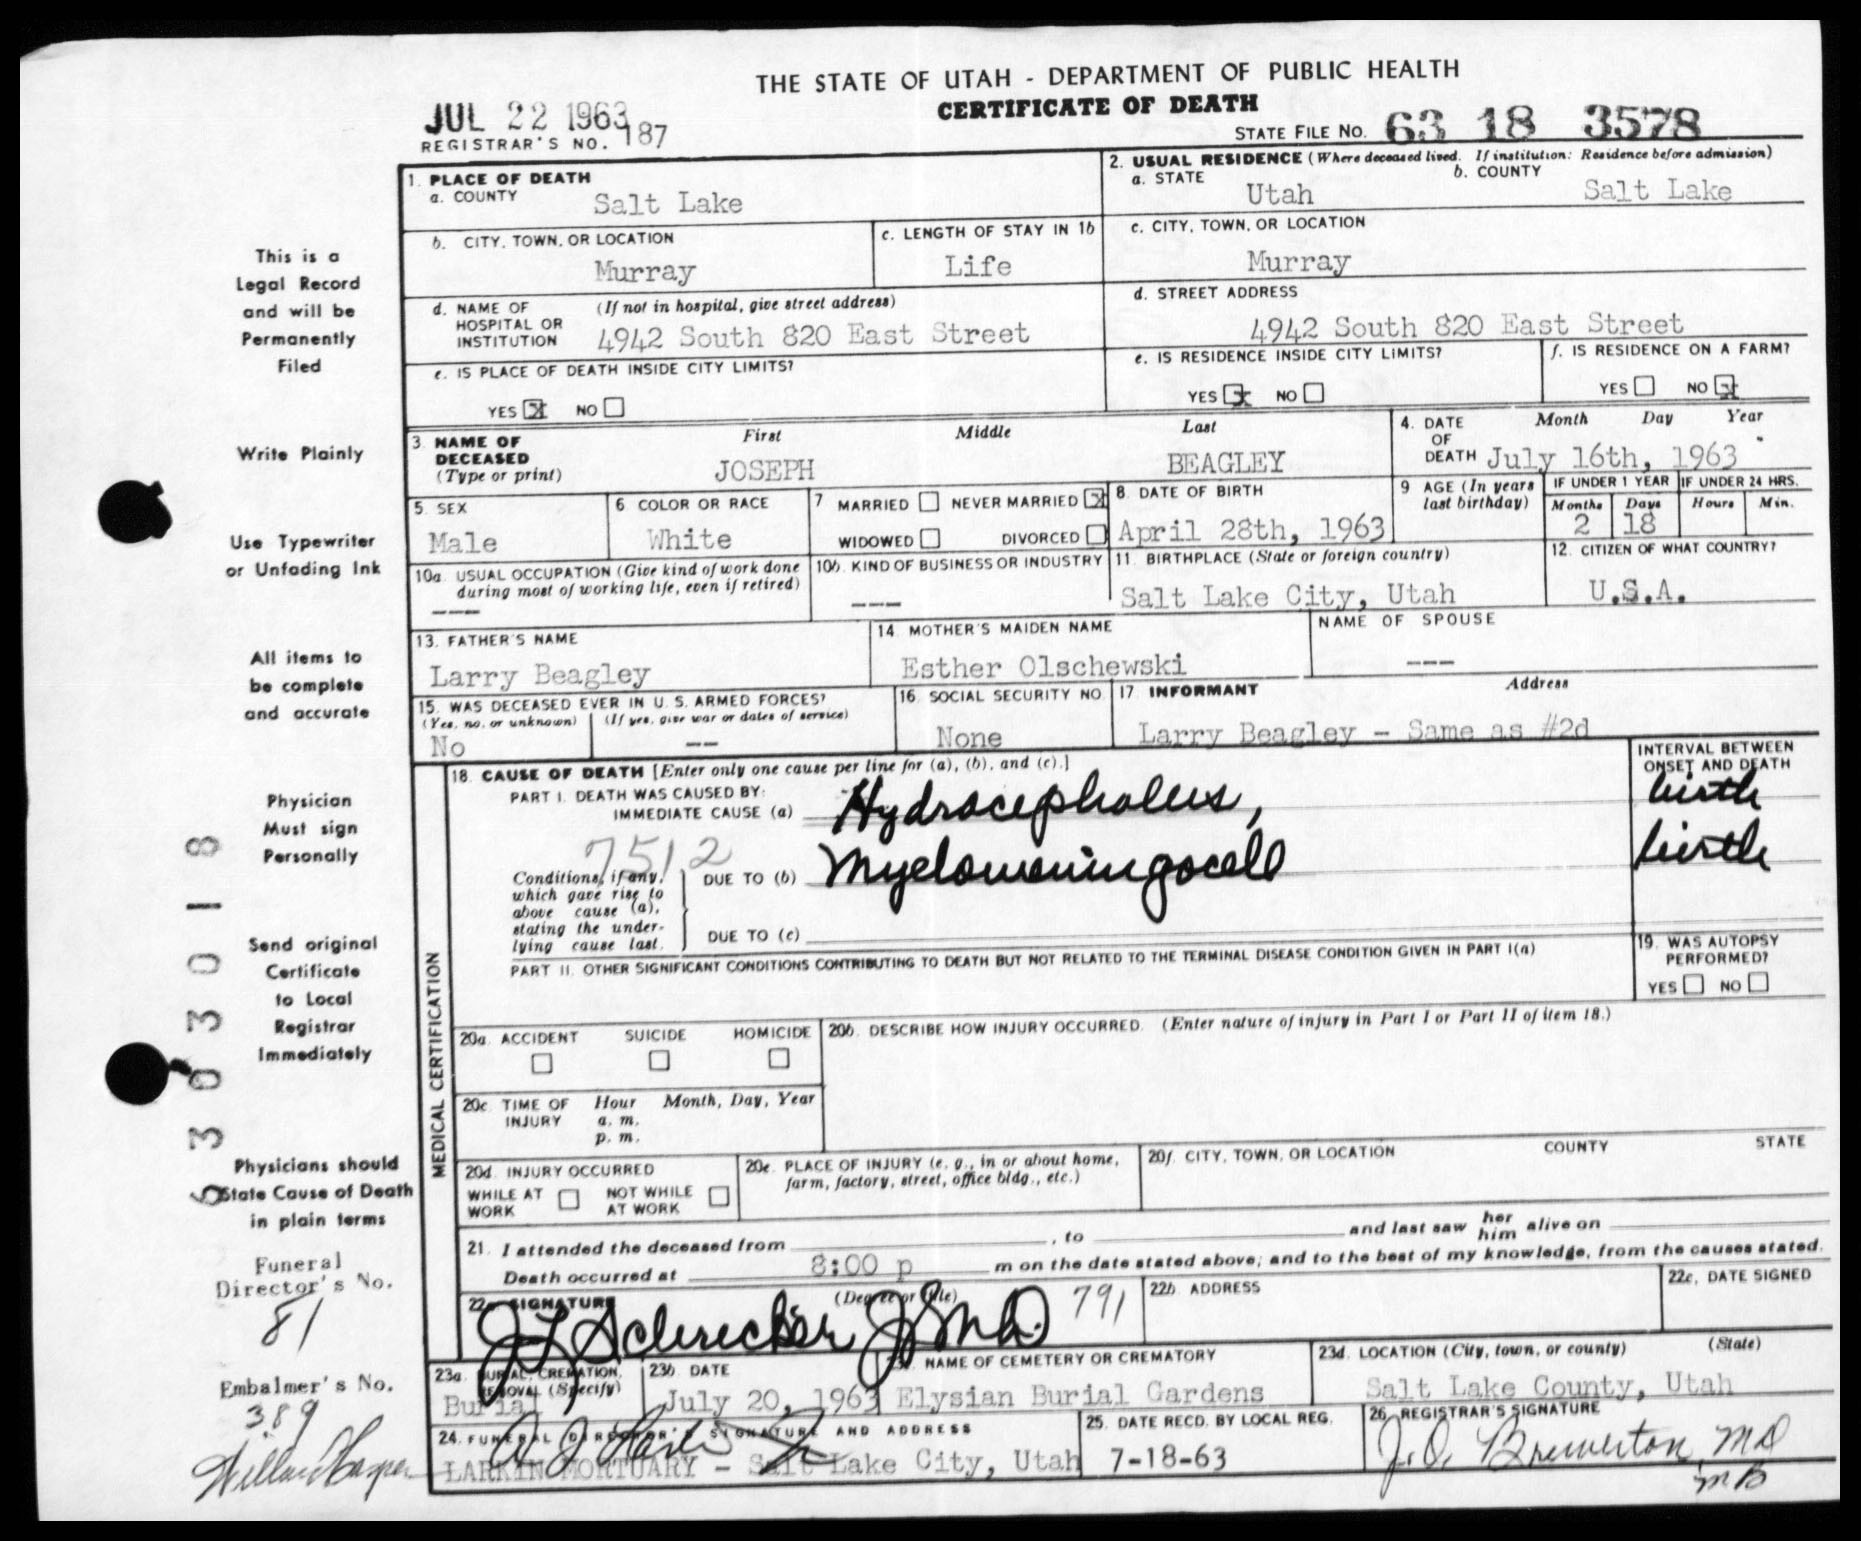 THE STATE OF UTAH - DEPARTMENT OF PUBLIC HEALTH
CERTIFICATE OF DEATH
JUL 22 1963
REGISTRAR'S NO. 187
STATE FILE NO. 63 18 3578
1. PLACE OF DEATH
a. COUNTY Salt Lake
2. USUAL RESIDENCE (Where deceased lived. If institution: Residence before admission)
a. STATE Utah b. COUNTY Salt Lake
b. CITY, TOWN, OR LOCATION
Murray
c. LENGTH OF STAY IN 1b
Life
c. CITY, TOWN, OR LOCATION
Murray
d. NAME OF HOSPITAL OR INSTITUTION (If not in hospital, give street address)
4942 South 820 East Street
d. STREET ADDRESS
4942 South 820 East Street
e. IS PLACE OF DEATH INSIDE CITY LIMITS?
YES x NO
e. IS RESIDENCE INSIDE CITY LIMITS?
YES x NO
f. IS RESIDENCE ON A FARM?
YES NO x
3. NAME OF DECEASED (Type or print)
First Middle Last
JOSEPH BEAGLEY
4. DATE OF DEATH Month Day Year
July 16th, 1963
5. SEX
Male
6 COLOR OR RACE
White
7 MARRIED NEVER MARRIED x
WIDOWED DIVORCED
8. DATE OF BIRTH
April 28th, 1963
9 AGE (In years last birthday)
IF UNDER 1 YEAR IF UNDER 24 HRS.
Months Days Hours Min.
2 18
10a. USUAL OCCUPATION (Give kind of work done during most of working life, even if retired)
---
10b. KIND OF BUSINESS OR INDUSTRY
---
11. BIRTHPLACE (State or foreign country)
Salt Lake City, Utah
12. CITIZEN OF WHAT COUNTRY?
U.S.A.
13. FATHER'S NAME
Larry Beagley
14. MOTHER'S MAIDEN NAME
Esther Olschewski
NAME OF SPOUSE
---
15. WAS DECEASED EVER IN U. S. ARMED FORCES?
(Yes, no, or unknown) (If yes, give war or dates of service)
No --
16. SOCIAL SECURITY NO
None
17. INFORMANT Address
Larry Beagley - Same as #2d
MEDICAL CERTIFICATION
18. CAUSE OF DEATH [Enter only one cause per line for (a), (b), and (c).]
INTERVAL BETWEEN ONSET AND DEATH
PART I. DEATH WAS CAUSED BY:
IMMEDIATE CAUSE (a) Hydrocephalus, birth
7512
Conditions, if any, which gave rise to above cause (a), stating the underlying cause last.
DUE TO (b) Myelomeningocele birth
DUE TO (c)
PART II. OTHER SIGNIFICANT CONDITIONS CONTRIBUTING TO DEATH BUT NOT RELATED TO THE TERMINAL DISEASE CONDITION GIVEN IN PART I(a)
19. WAS AUTOPSY PERFORMED?
YES NO
20a. ACCIDENT SUICIDE HOMICIDE
20b. DESCRIBE HOW INJURY OCCURRED. (Enter nature of injury in Part I or Part II of item 18.)
20c. TIME OF INJURY Hour Month, Day, Year
a. m.
p. m.
20d. INJURY OCCURRED
WHILE AT WORK NOT WHILE AT WORK
20e. PLACE OF INJURY (e. g., in or about home, farm, factory, street, office bldg., etc.)
20f. CITY, TOWN, OR LOCATION COUNTY STATE
21. I attended the deceased from , to and last saw her him alive on
Death occurred at 8:00 p m on the date stated above; and to the best of my knowledge, from the causes stated.
22a. SIGNATURE (Degree or title)
791
22b. ADDRESS
22c. DATE SIGNED
23a. BURIAL, CREMATION, REMOVAL (Specify)
Burial
23b. DATE
July 20, 1963
NAME OF CEMETERY OR CREMATORY
Elysian Burial Gardens
23d. LOCATION (City, town, or county) (State)
Salt Lake County, Utah
24. FUNERAL DIRECTOR'S SIGNATURE AND ADDRESS
LARKIN MORTUARY - Salt Lake City, Utah
25. DATE RECD. BY LOCAL REG.
7-18-63
26. REGISTRAR'S SIGNATURE
J.O. Brewerton, MD
MB
This is a
Legal Record
and will be
Permanently
Filed
Write Plainly
Use Typewriter
or Unfading Ink
All items to
be complete
and accurate
Physician
Must sign
Personally
Send original
Certificate
to Local
Registrar
Immediately
Physicians should
State Cause of Death
in plain terms
Funeral
Director's No.
81
Embalmer's No.
389